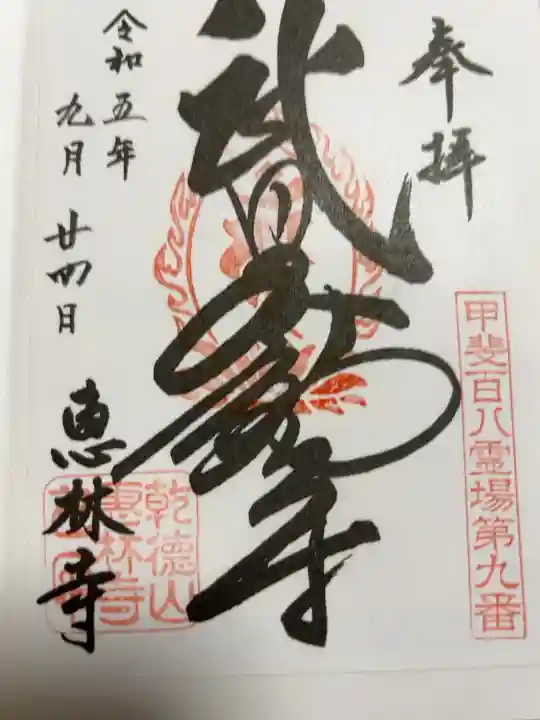 奉拝
甲斐百八霊場第九番
武田不動尊
乾徳山
恵林寺
令和五年
九月廿四日
恵林寺